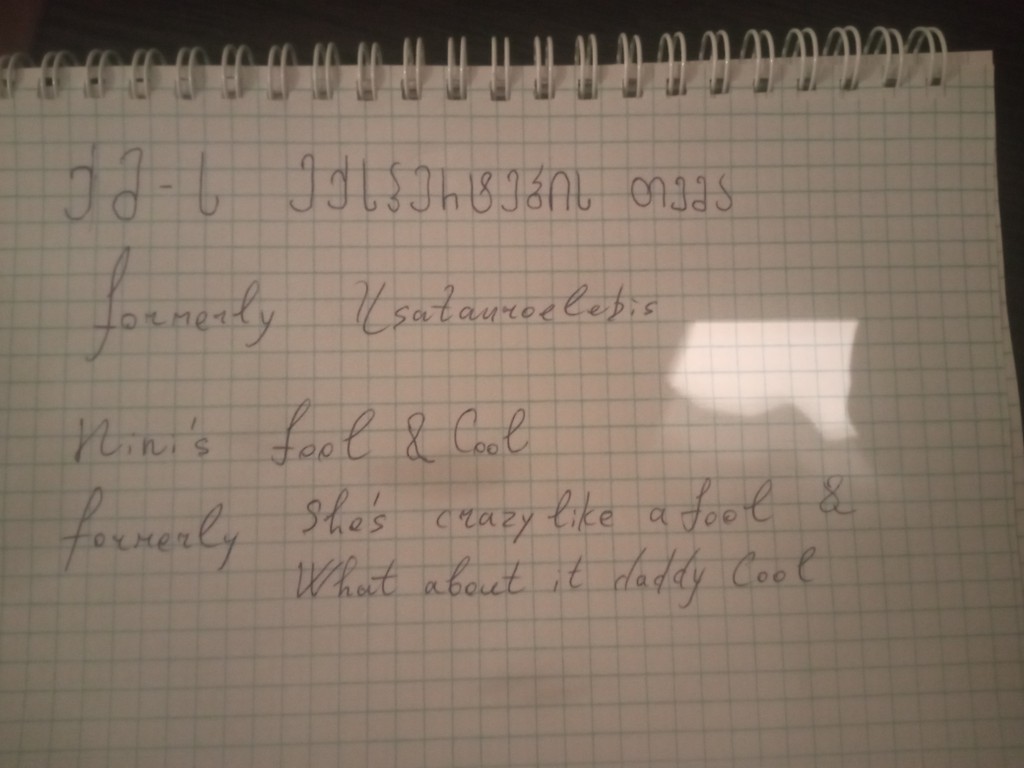 ექ-ს ექსპერტების თემა
formerly Usatauroelebis
Nini's fool & Cool
formerly She's crazy like a fool &
What about it daddy Cool